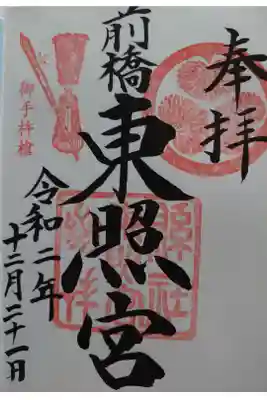 奉拝
前橋
東照宮
令和二年
十二月二十一日
御手杵槍